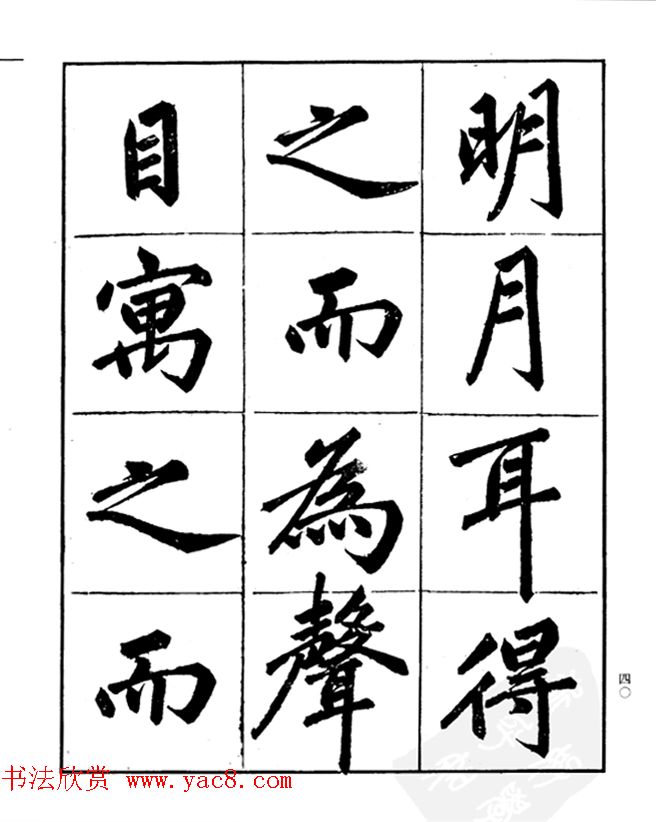 明月耳得
之而為聲
目寓之而
四〇
书法欣赏 www.yac8.com